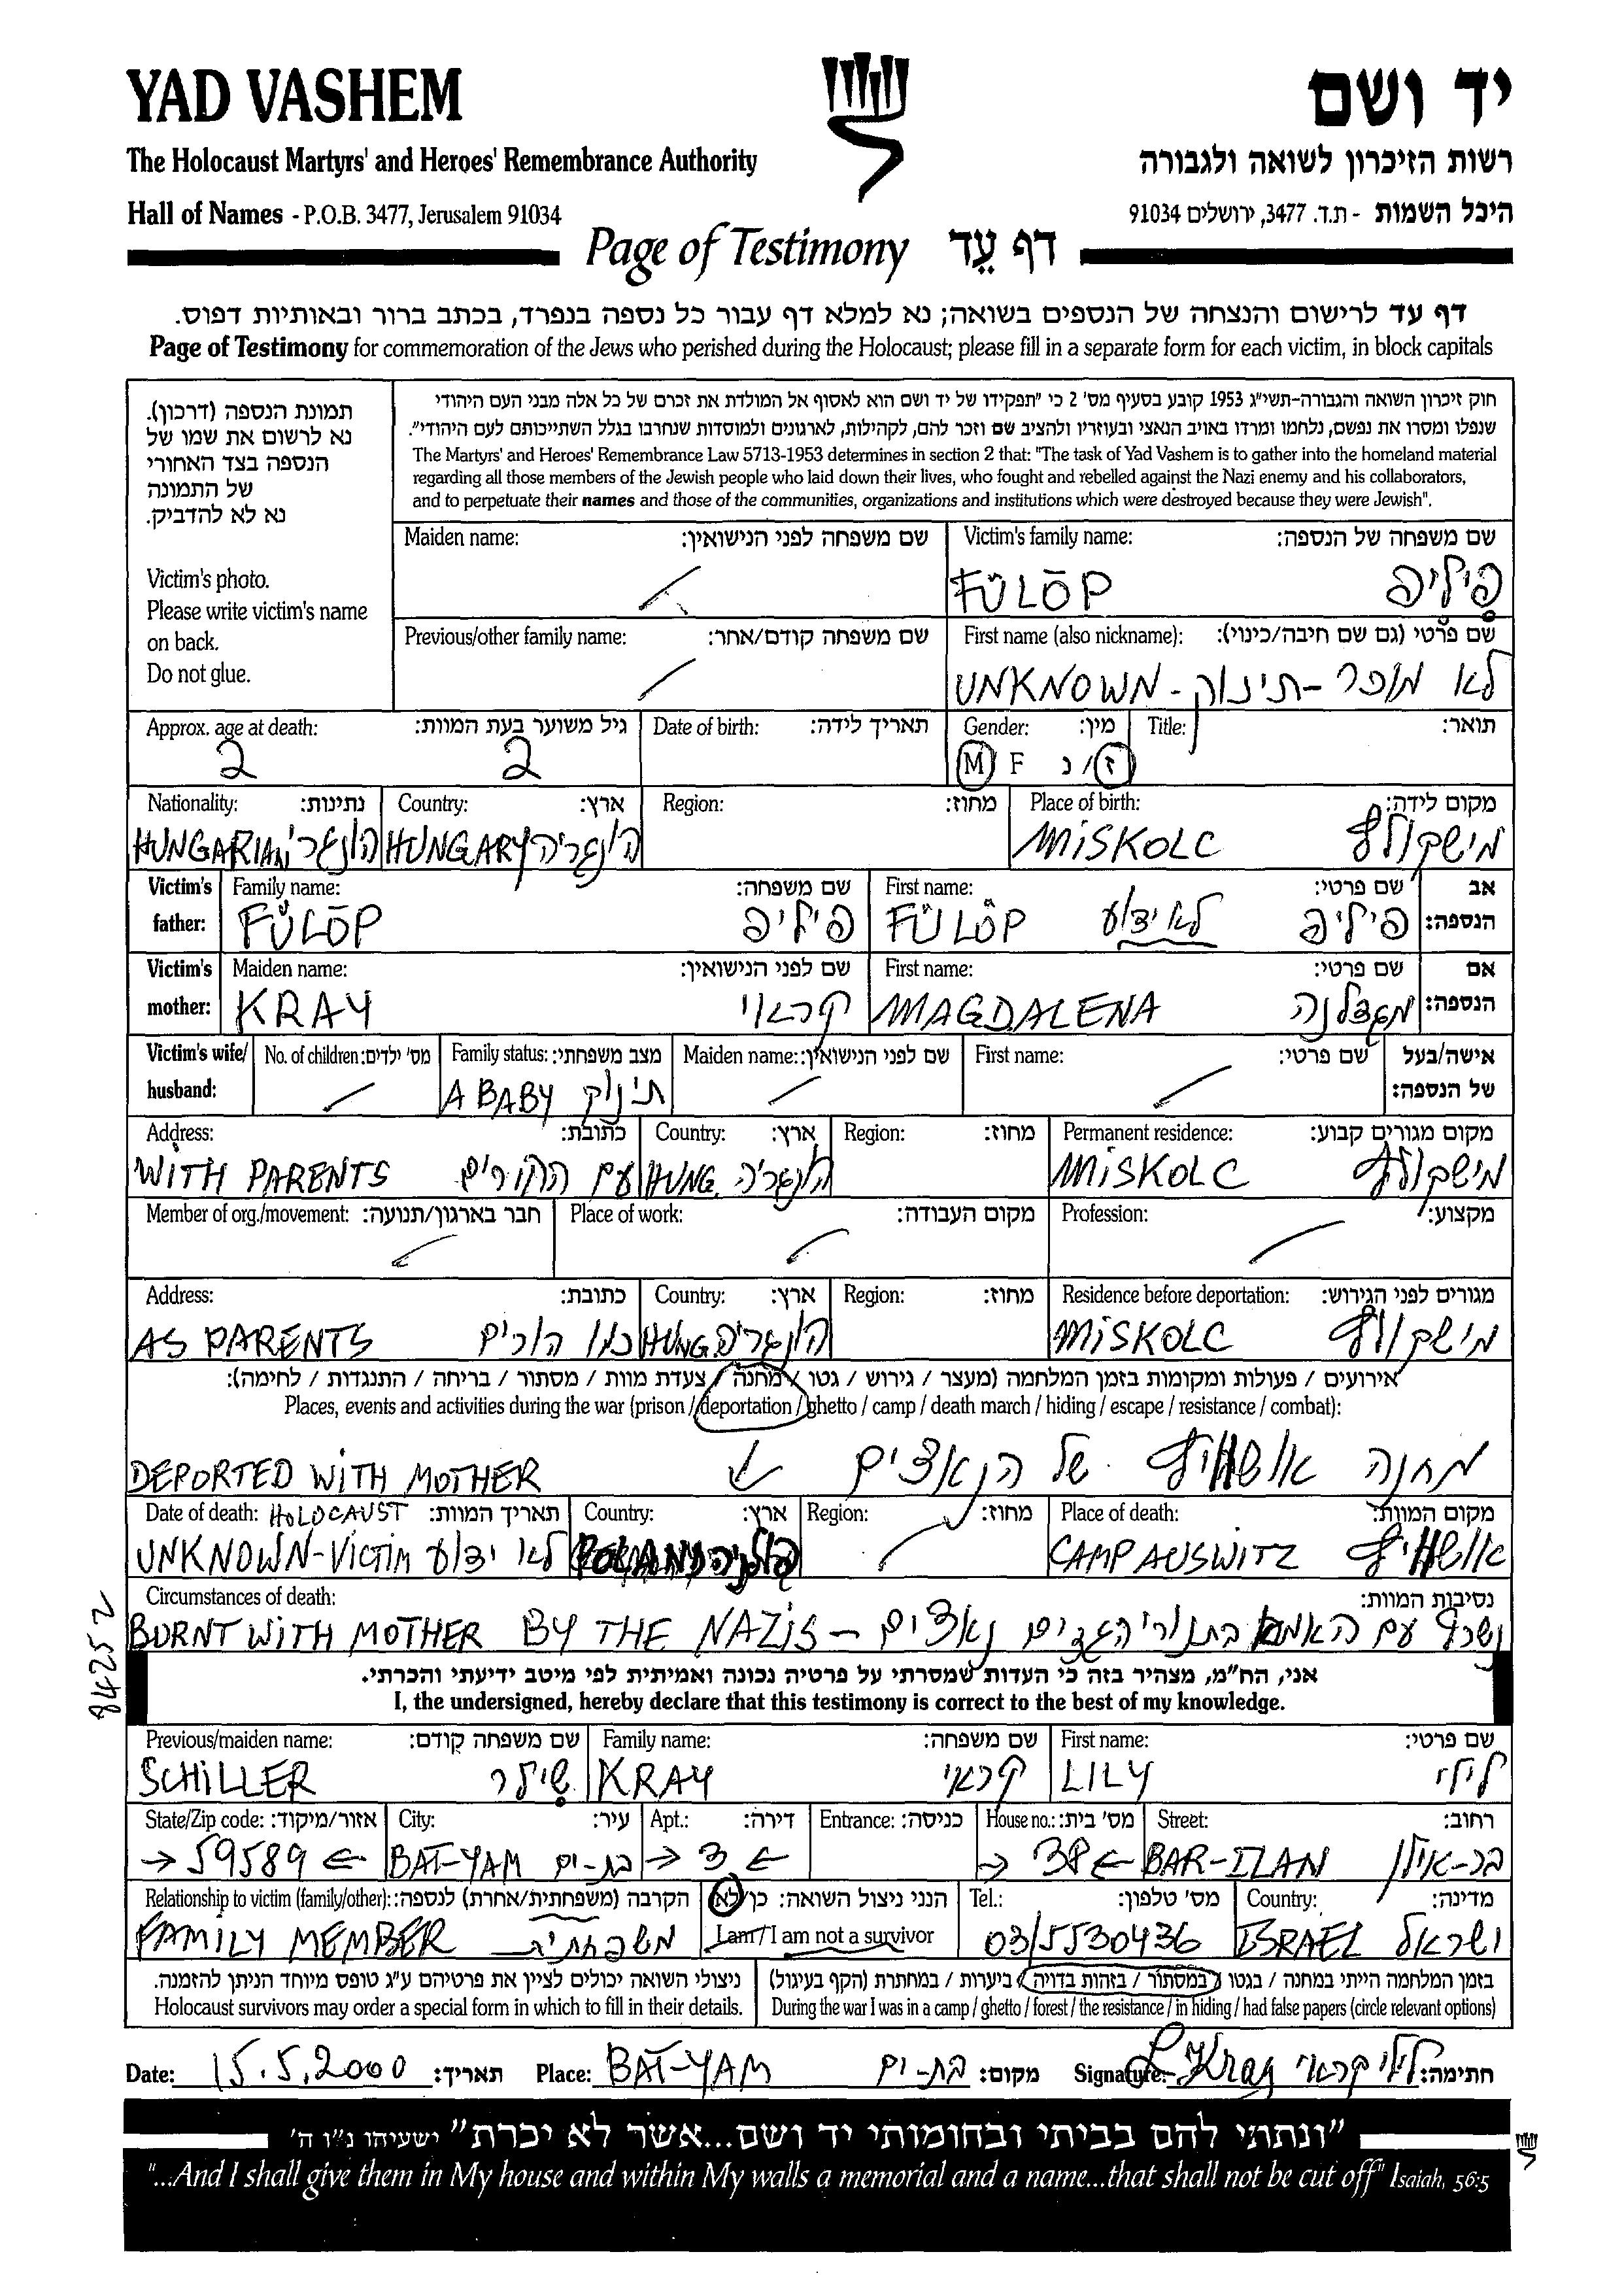 YAD VASHEM
יד ושם
The Holocaust Martyrs' and Heroes' Remembrance Authority
רשות הזיכרון לשואה ולגבורה
Hall of Names - P.O.B. 3477, Jerusalem 91034
היכל השמות - ת.ד. 3477, ירושלים 91034
Page of Testimony דף עֵד
דף עד לרישום והנצחה של הנספים בשואה; נא למלא דף עבור כל נספה בנפרד, בכתב ברור ובאותיות דפוס.
Page of Testimony for commemoration of the Jews who perished during the Holocaust; please fill in a separate form for each victim, in block capitals
תמונת הנספה (דרכון).
נא לרשום את שמו של
הנספה בצד האחורי
של התמונה
נא לא להדביק.
Victim's photo.
Please write victim's name
on back.
Do not glue.
חוק זיכרון השואה והגבורה-תשי"ג 1953 קובע בסעיף מס' 2 כי "תפקידו של יד ושם הוא לאסוף אל המולדת את זכרם של כל אלה מבני העם היהודי
שנפלו ומסרו את נפשם, נלחמו ומרדו באויב הנאצי ובעוזריו ולהציב שם וזכר להם, לקהילות, לארגונים ולמוסדות שנחרבו בגלל השתייכותם לעם היהודי".
The Martyrs' and Heroes' Remembrance Law 5713-1953 determines in section 2 that: "The task of Yad Vashem is to gather into the homeland material
regarding all those members of the Jewish people who laid down their lives, who fought and rebelled against the Nazi enemy and his collaborators,
and to perpetuate their names and those of the communities, organizations and institutions which were destroyed because they were Jewish".
Maiden name: שם משפחה לפני הנישואין: Victim's family name: שם משפחה של הנספה:
FÜLÖP פיליפ
Previous/other family name: שם משפחה קודם/אחר: First name (also nickname): שם פרטי (גם שם חיבה/כינוי):
UNKNOWN - לא מוכר - תינוק
Approx. age at death: גיל משוער בעת המוות: Date of birth: תאריך לידה: Gender: מין: Title: תואר:
2 2 M F ז/נ
Nationality: נתינות: Country: ארץ: Region: מחוז: Place of birth: מקום לידה:
HUNGARIAN הונגרי HUNGARY הונגריה MISKOLC מישקולץ
Victim's father: Family name: שם משפחה: First name: שם פרטי: אב הנספה:
FÜLÖP פיליפ FÜLÖP לא ידוע פיליפ
Victim's mother: Maiden name: שם לפני הנישואין: First name: שם פרטי: אם הנספה:
KRAY קראי MAGDALENA מגדלנה
Victim's wife/husband: No. of children: מס' ילדים: Family status: מצב משפחתי: Maiden name: שם לפני הנישואין: First name: שם פרטי: אישה/בעל של הנספה:
A BABY תינוק
Address: כתובת: Country: ארץ: Region: מחוז: Permanent residence: מקום מגורים קבוע:
WITH PARENTS עם ההורים HUNG. הונגריה MISKOLC מישקולץ
Member of org./movement: חבר בארגון/תנועה: Place of work: מקום העבודה: Profession: מקצוע:
Address: כתובת: Country: ארץ: Region: מחוז: Residence before deportation: מגורים לפני הגירוש:
AS PARENTS כמו הורים HUNG. הונגריה MISKOLC מישקולץ
אירועים / פעולות ומקומות בזמן המלחמה (מעצר / גירוש / גטו / מחנה / צעדת מוות / מסתור / בריחה / התנגדות / לחימה):
Places, events and activities during the war (prison / deportation / ghetto / camp / death march / hiding / escape / resistance / combat):
DEPORTED WITH MOTHER מחנה אושוויץ של הנאצים
Date of death: תאריך המוות: Country: ארץ: Region: מחוז: Place of death: מקום המוות:
HOLOCAUST
UNKNOWN-VICTIM לא ידוע POLAND פולניה CAMP AUSWITZ אושוויץ
Circumstances of death: נסיבות המוות:
BURNT WITH MOTHER BY THE NAZIS - נשרף עם האמא בתנורי הגזים נאצים
84252
אני, הח"מ, מצהיר בזה כי העדות שמסרתי על פרטיה נכונה ואמיתית לפי מיטב ידיעתי והכרתי.
I, the undersigned, hereby declare that this testimony is correct to the best of my knowledge.
Previous/maiden name: שם משפחה קודם: Family name: שם משפחה: First name: שם פרטי:
SCHILLER שילר KRAY קראי LILY לילי
State/Zip code: אזור/מיקוד: City: עיר: Apt.: דירה: Entrance: כניסה: House no.: מס' בית: Street: רחוב:
→ 59589 ← BAT-YAM בת-ים → 3 ← → 38 ← BAR-ILAN בר-אילן
Relationship to victim (family/other): הקרבה (משפחתית/אחרת) לנספה: הנני ניצול השואה: כן/לא Tel.: מס' טלפון: Country: מדינה:
FAMILY MEMBER משפחתית I am/I am not a survivor 03/5530436 ISRAEL ישראל
ניצולי השואה יכולים לציין את פרטיהם ע"ג טופס מיוחד הניתן להזמנה.
Holocaust survivors may order a special form in which to fill in their details.
בזמן המלחמה הייתי במחנה / בגטו / במסתור / בזהות בדויה / ביערות / במחתרת (הקף בעיגול)
During the war I was in a camp / ghetto / forest / the resistance / in hiding / had false papers (circle relevant options)
Date: 15.5.2000 תאריך: Place: BAT-YAM בת-ים מקום: Signature: L. Kray לילי קראי חתימה:
"ונתתי להם בביתי ובחומותי יד ושם...אשר לא יכרת" ישעיהו נ"ו ה'
"...And I shall give them in My house and within My walls a memorial and a name...that shall not be cut off" Isaiah, 56:5